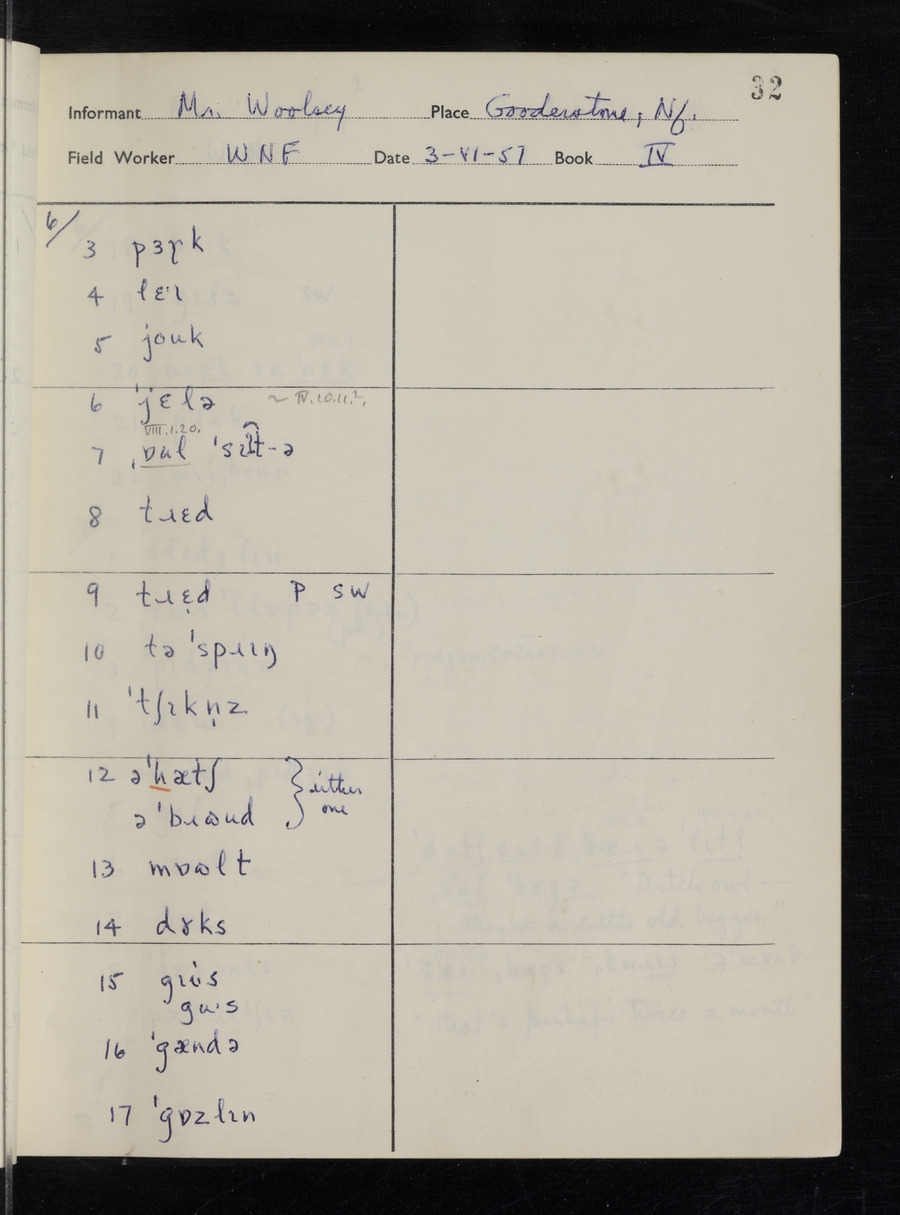 32
Informant Mr. Woolsey Place Gooderstone, Nf.
Field Worker WNF Date 3-VI-57 Book IV
6/
3 pɜɤk
4 lɛ·ɪ
5 joʊk
6 ˈjɛlə ~ IV.10.11.².
VIII.1.20.
7 ˌɒʊl ˈsɪt-ə
8 tɹɛd
9 tɹɛ̣d P SW
10 tə ˈspɹɪŋ
11 ˈtʃɪkn̩z
12 əˈhætʃ } either
əˈbɹɷud one
13 mɒɷlt
14 dɤks
15 gɪʉ·s
gʉ·s
16 ˈgændə
17 ˈgɒzlɪn